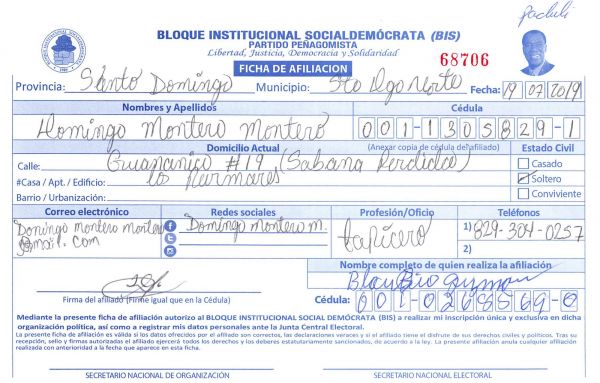 BLOQUE INSTITUCIONAL SOCIALDEMÓCRATA (BIS)
PARTIDO PEÑAGOMISTA
Libertad, Justicia, Democracia y Solidaridad
68706
FICHA DE AFILIACION
Provincia: Santo Domingo Municipio: Sto Dgo Norte Fecha: 19 07 2019
Nombres y Apellidos Cédula
Domingo Montero Montero 001-1305829-1
Domicilio Actual (Anexar copia de cédula del afiliado) Estado Civil
Calle: #19 (Sabana Perdida) Casado
#Casa / Apt. / Edificio: Soltero
Barrio / Urbanización: Conviviente
Correo electrónico Redes sociales Profesión/Oficio Teléfonos
Domingo montero montero Domingo montero m. tapicero 1) 829-304-0257
@mail.com 2)
Nombre completo de quien realiza la afiliación
Guzman
Firma del afiliado (Firme igual que en la Cédula) Cédula: 001-0268569-0
Mediante la presente ficha de afiliación autorizo al BLOQUE INSTITUCIONAL SOCIAL DEMÓCRATA (BIS) a realizar mi inscripción única y exclusiva en dicha
organización política, así como a registrar mis datos personales ante la Junta Central Electoral.
La presente ficha de afiliación es válida si los datos ofrecidos por el afiliado son correctos, las declaraciones veraces y si el afiliado tiene el disfrute de sus derechos civiles y políticos. Tras su
recepción, sello y firmas autorizadas el afiliado ejercerá todos los derechos y los deberes estatutariamente sancionados, de acuerdo a la ley. La presente afiliación anula cualquier afiliación
realizada con anterioridad a la fecha que aparece en esta ficha.
SECRETARIO NACIONAL DE ORGANIZACIÓN SECRETARIO NACIONAL ELECTORAL